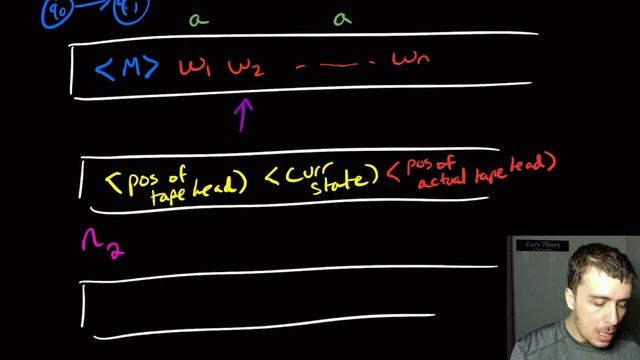 q0 → q1
a a
<M> w1 w2 . — . wn
<pos of tape head> <curr state> <pos of actual tape head>
n2
Easy Theory